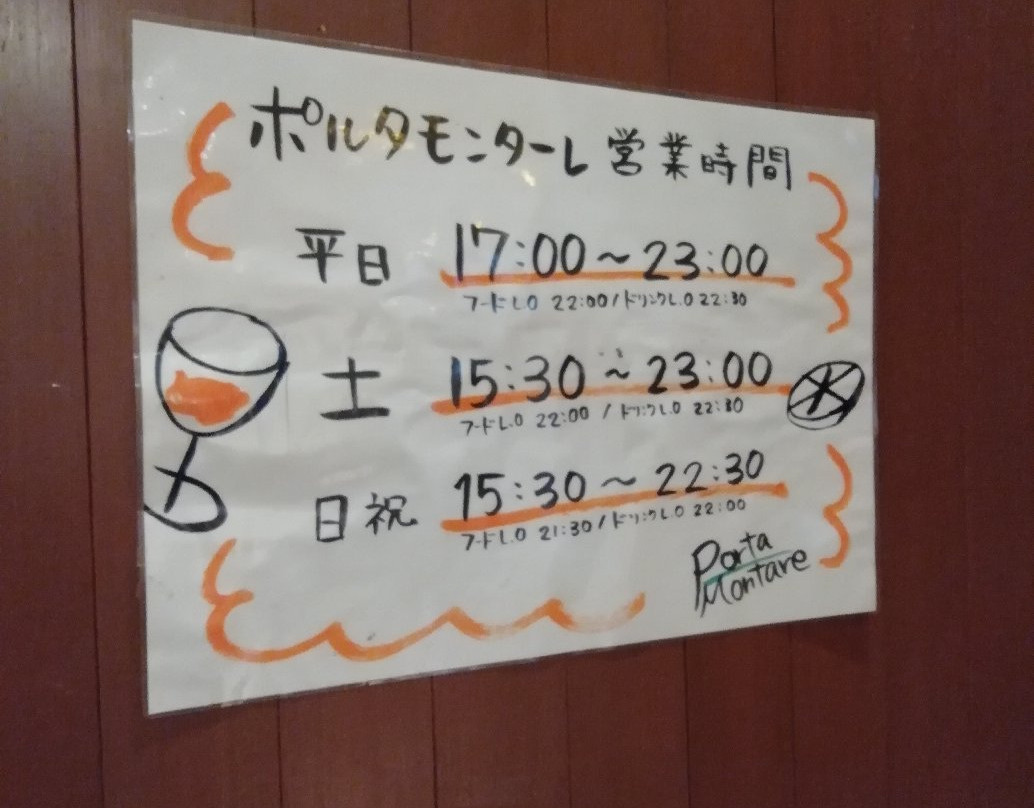 ポルタモンターレ営業時間
平日 17:00～23:00
フードL.O 22:00/ドリンクL.O 22:30
土 15:30～23:00
フードL.O 22:00 /ドリンクL.O 22:30
日祝 15:30～22:30
フードL.O 21:30/ドリンクL.O 22:00
Porta
Montare